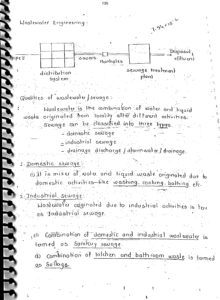 Wastewater Engineering:
Disposal,
effluent
sewers
Manholes
distribution
system
sewage treatment
plant
Qualities of wastewater/sewage:
Wastewater is the combination of water and liquid
waste originated from locality after different activities.
Sewage can be classified into three types
- domestic sewage
- industrial sewage
- drainage discharge / stormwater / drainage.
1. Domestic sewage:
(i) It is mixer of water and liquid waste originated due to
domestic activities like washing, cooking, bathing etc.
2. Industrial sewage:
Wastewater originated due to industrial activities is
as Industrial sewage.
Combination of domestic and industrial wastewater is
termed as Sanitary sewage
Combination of kitchen and bathroom waste is termed
as Sullage.